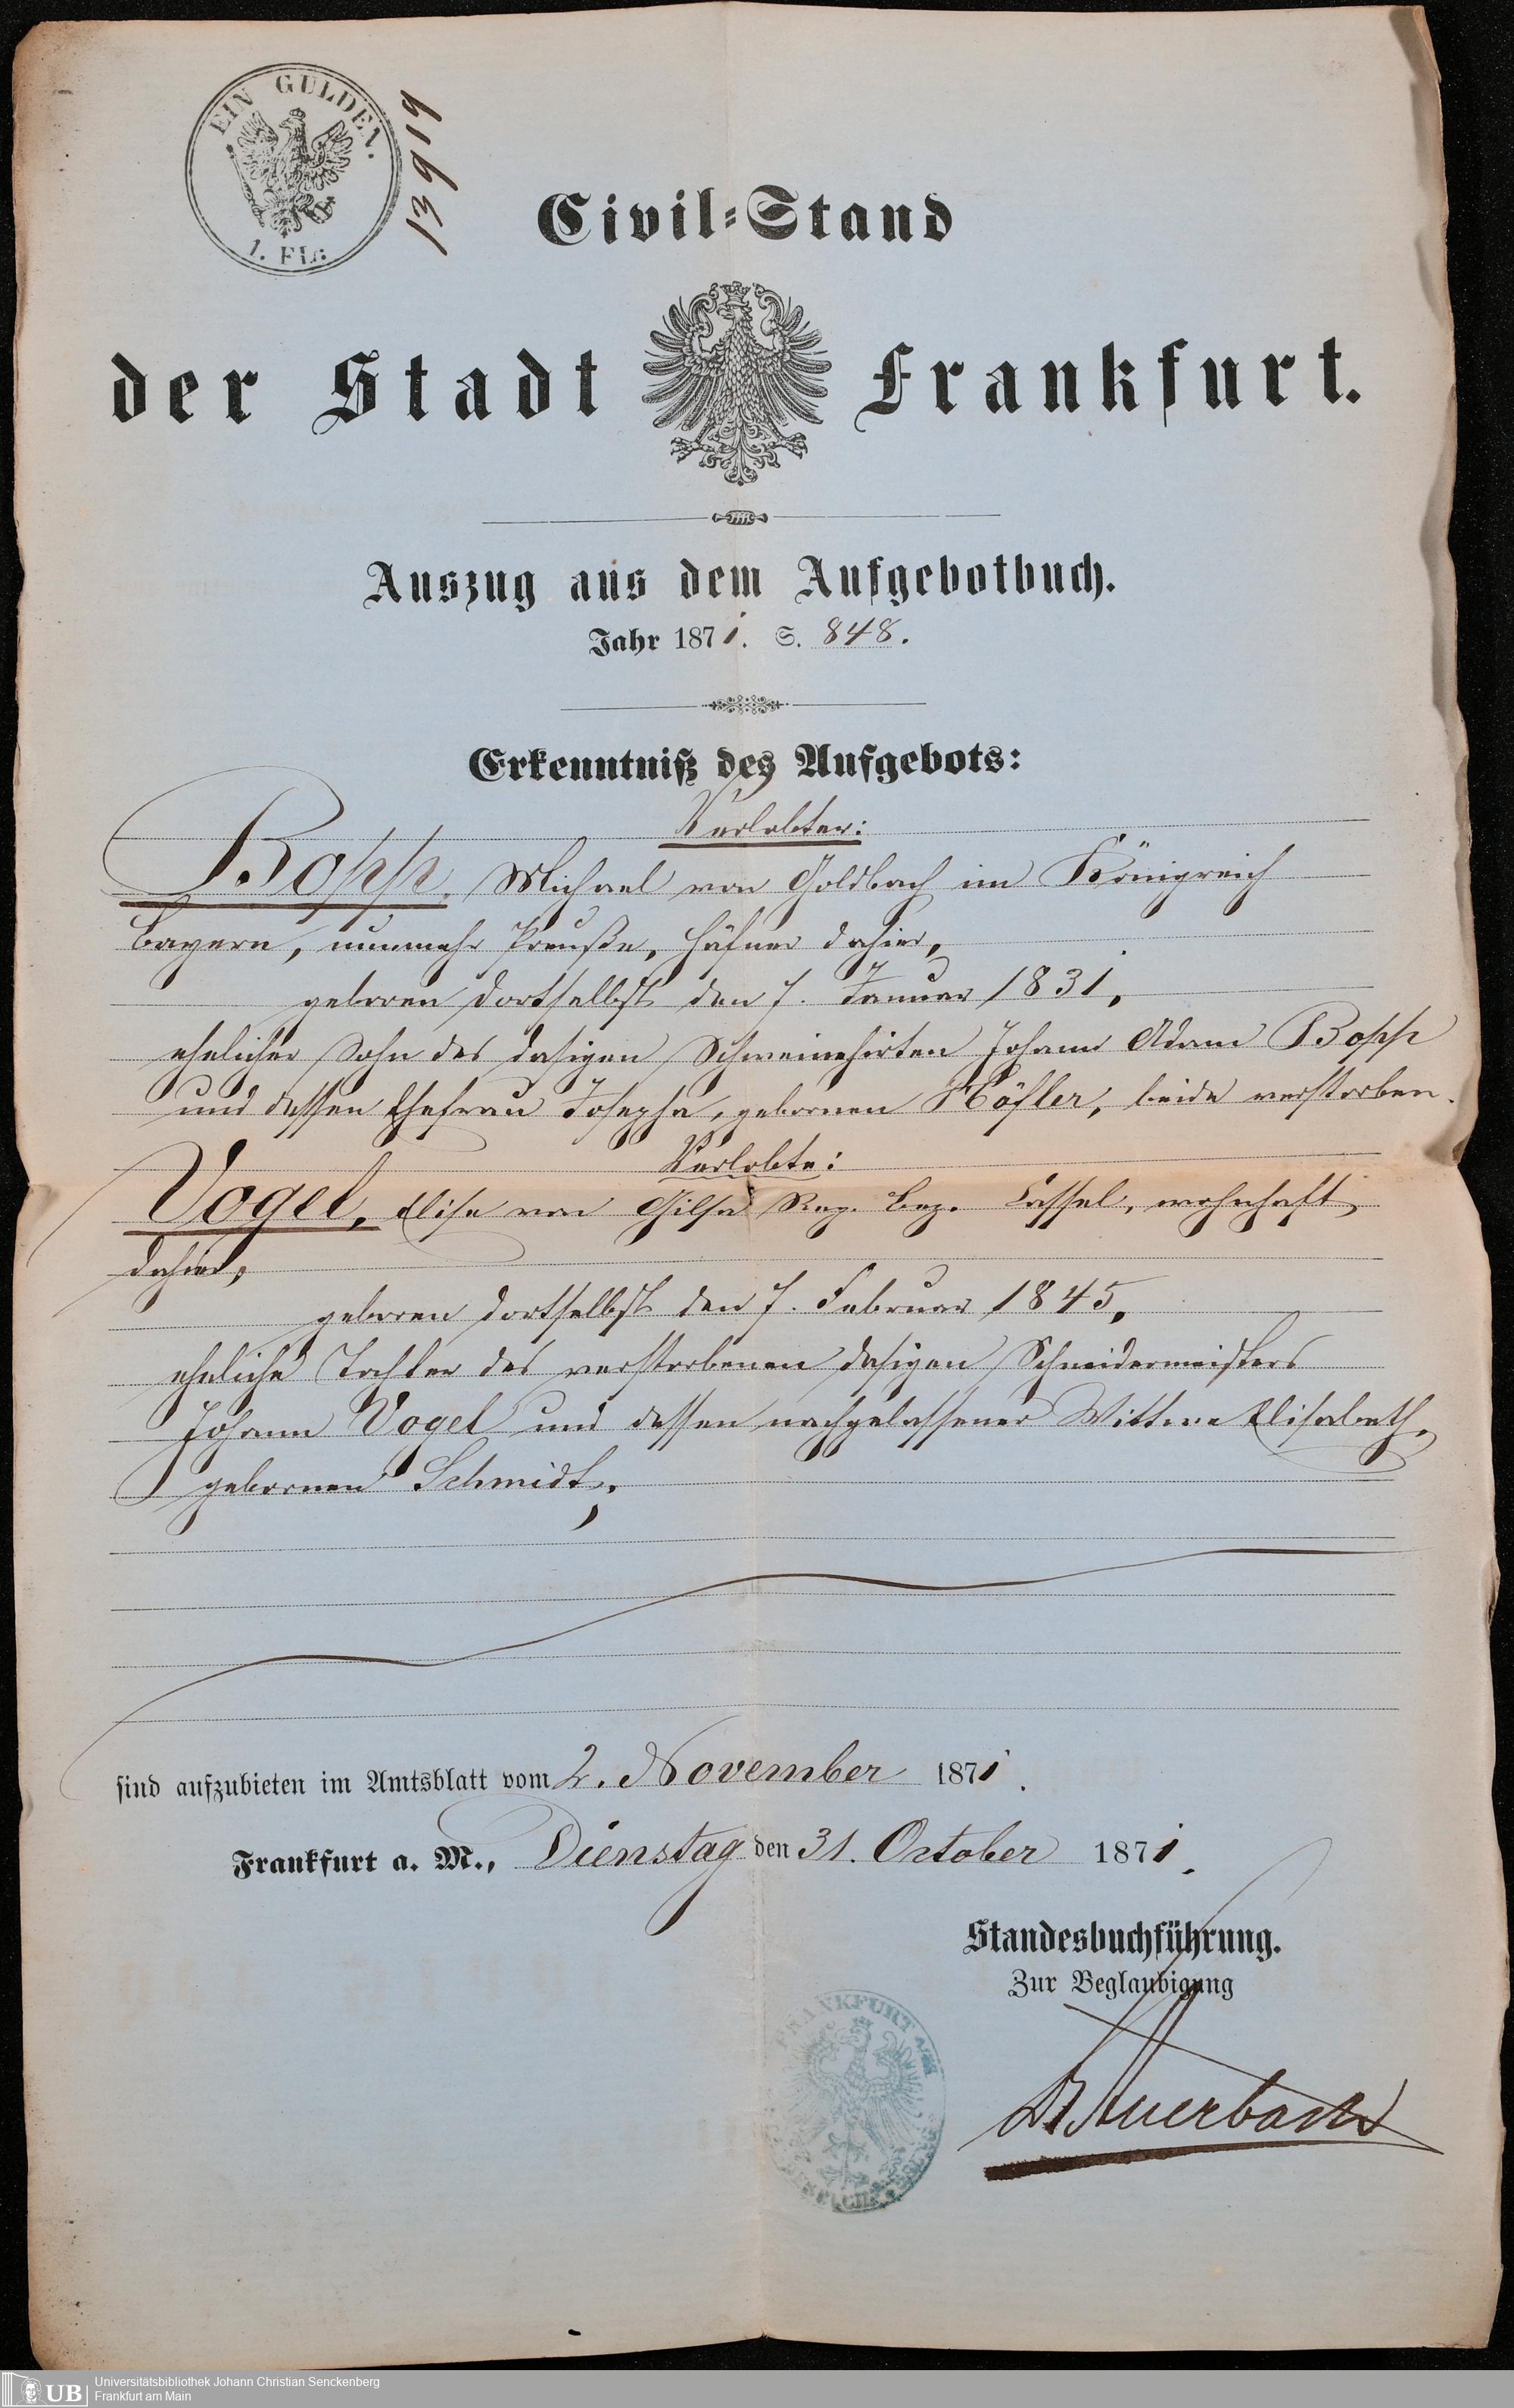 EIN GULDEN.
1. Fl:
13919
Civil-Stand
der Stadt Frankfurt.
Auszug aus dem Aufgebotbuch.
Jahr 1871. S. 848.
Erkenntniß des Aufgebots:
Verlobter:
Bopp, Michael von Goldbach im Königreich
Bayern, nunmehr Preuße, Häfner dahier,
geboren dortselbst den 7. Januar 1831,
ehelicher Sohn des dasigen Schweinehirten Johann Adam Bopp
und dessen Ehefrau Josepha, gebornen Höfler, beide verstorben.
Verlobte:
Vogel, Elise von Gilsa Reg. Bez. Cassel, wohnhaft
dahier,
geboren dortselbst den 7. Februar 1845,
eheliche Tochter des verstorbenen dasigen Schneidermeisters
Johann Vogel und dessen nachgelassener Wittwe Elisabeth,
gebornen Schmidt,
sind aufzubieten im Amtsblatt vom 2. November 1871.
Frankfurt a. M., Dienstag den 31. October 1871.
Standesbuchführung.
Zur Beglaubigung
FRANKFURT A/M
Dr Auerbach
UB
Universitätsbibliothek Johann Christian Senckenberg
Frankfurt am Main